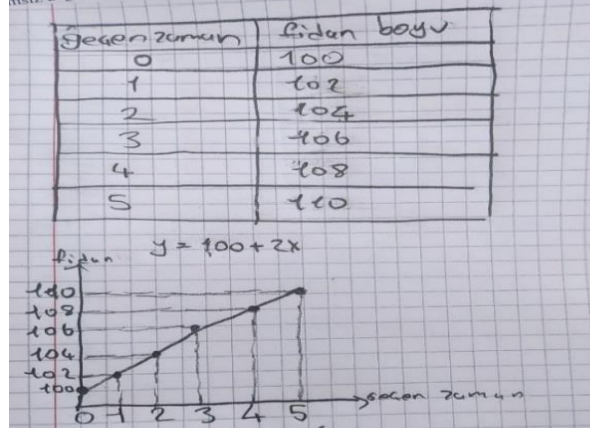 geçen zaman fidan boyu
0 100
1 102
2 104
3 106
4 108
5 110
y = 100 + 2x
fidan
110
108
106
104
102
100
0 1 2 3 4 5 geçen zaman